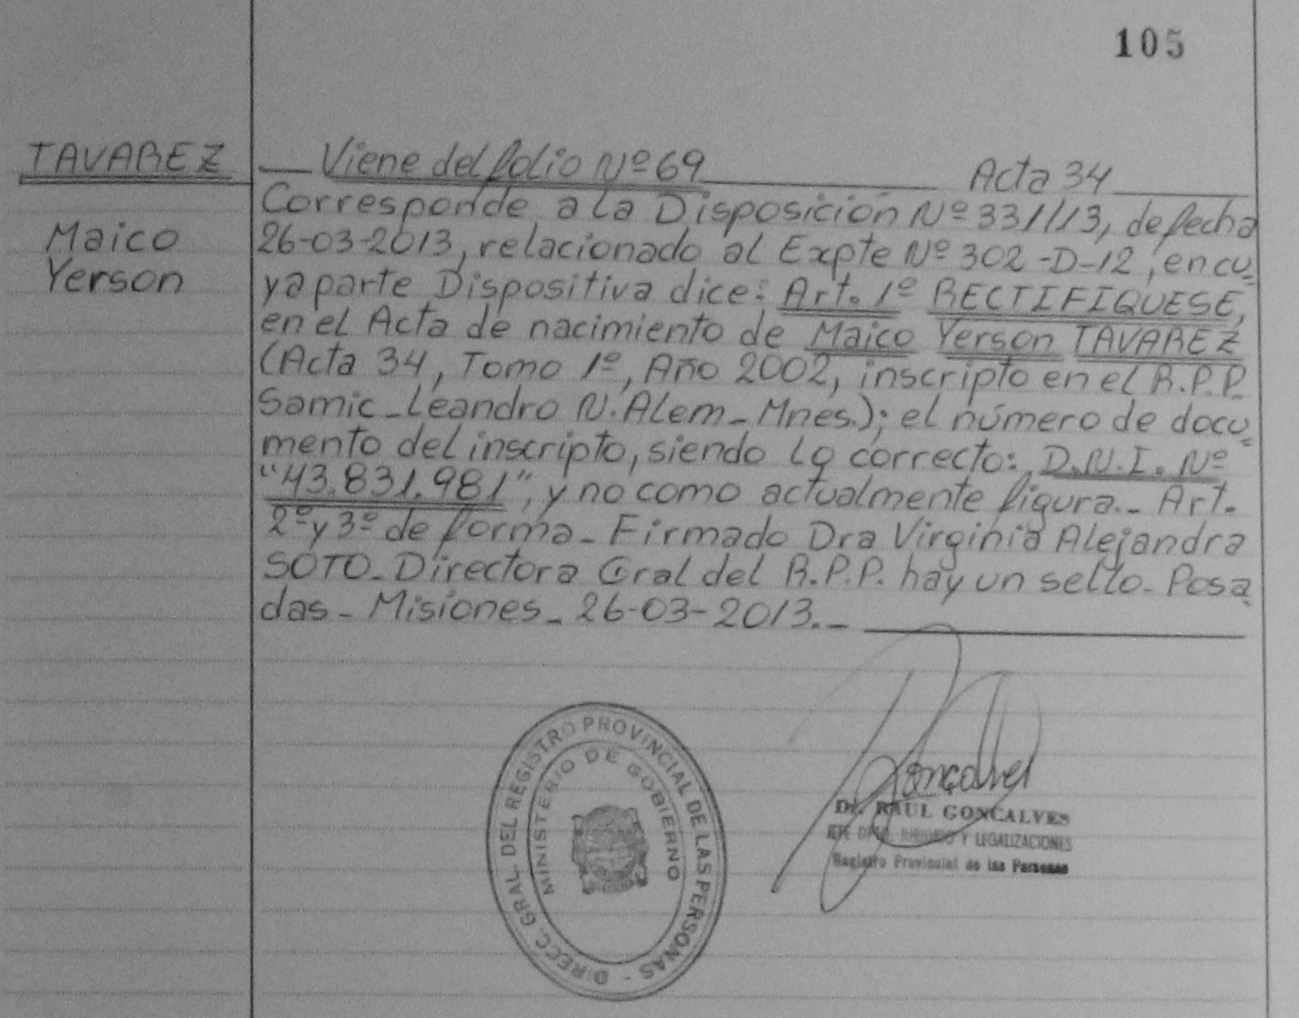 105
TAVAREZ
Maico
Yerson
Viene del folio Nº 69 Acta 34
Corresponde a la Disposición Nº 331/13, de fecha
26-03-2013, relacionado al Expte Nº 302-D-12, en cu-
ya parte Dispositiva dice: Art. 1º RECTIFIQUESE,
en el Acta de nacimiento de Maico Yerson TAVAREZ
(Acta 34, Tomo 1º, Año 2002, inscripto en el R.P.P.
Samic-Leandro N. Alem-Mnes.); el número de docu-
mento del inscripto, siendo lo correcto: D.N.I. Nº
"43.831.981", y no como actualmente figura.- Art.
2º y 3º de forma- Firmado Dra Virginia Alejandra
SOTO- Directora Gral del R.P.P. hay un sello- Posa
das- Misiones- 26-03-2013.-
DIRECC. GRAL. DEL REGISTRO PROVINCIAL DE LAS PERSONAS -
MINISTERIO DE GOBIERNO
Goncalves
Dr. RAUL GONCALVES
JEFE DPTO. JURIDICO Y LEGALIZACIONES
Registro Provincial de las Personas